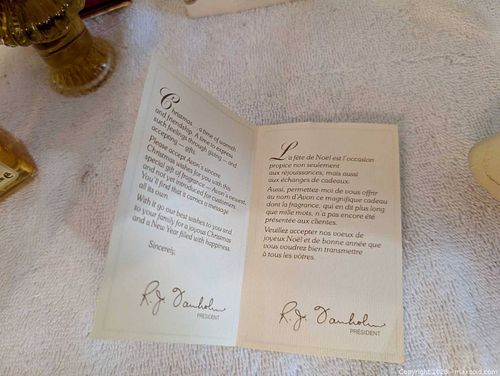 Christmas ... a time of warmth
and friendship. A time to express
such feelings through giving ... and
accepting ... gifts.
Please accept Avon's sincere
Christmas wishes for you with this
special gift of fragrance ... Avon's newest,
and not yet introduced for customers.
You'll find that it carries a message
all its own.
With it go our best wishes to you and
to your family for a joyous Christmas
and a New Year filled with happiness.
Sincerely,
PRESIDENT
La fête de Noël est l'occasion
propice non seulement
aux réjouissances, mais aussi
aux échanges de cadeaux.
Aussi, permettez-moi de vous offrir
au nom d'Avon ce magnifique cadeau
dont la fragrance, qui en dit plus long
que mille mots, n'a pas encore été
présentée aux clientes.
Veuillez accepter nos voeux de
joyeux Noël et de bonne année que
vous voudrez bien transmettre
à tous les vôtres.
PRÉSIDENT